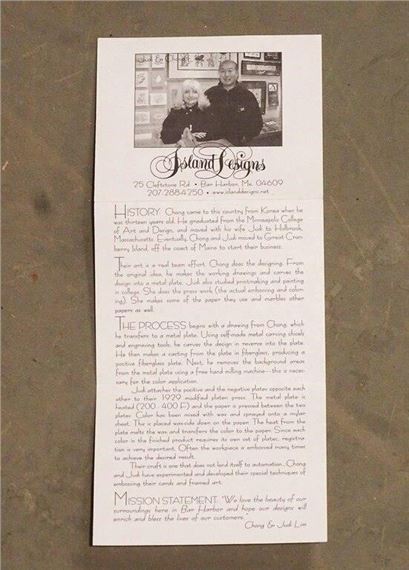 Judi & Chong
Island Designs
25 Cleftstone Rd. • Bar Harbor, Me. 04609
207-288-4250 • www.islanddesigns.net
HISTORY: Chong came to this country from Korea when he
was thirteen years old. He graduated from the Minneapolis College
of Art and Design, and moved with his wife Judi to Holbrook,
Massachusetts. Eventually, Chong and Judi moved to Great Cran-
berry Island, off the coast of Maine to start their business.
Their art is a real team effort. Chong does the designing. From
the original idea, he makes the working drawings and carves the
design into a metal plate. Judi also studied printmaking and painting
in college. She does the press work (the actual embossing and color-
ing). She makes some of the paper they use and marbles other
papers as well.
THE PROCESS begins with a drawing from Chong, which
he transfers to a metal plate. Using self-made metal carving chisels
and engraving tools, he carves the design in reverse into the plate.
He then makes a casting from the plate in fiberglass, producing a
positive fiberglass plate. Next, he removes the background areas
from the metal plate using a free hand milling machine--this is neces-
sary for the color application.
Judi attaches the positive and the negative plates opposite each
other to their 1929 modified platen press. The metal plate is
heated (200-400 F) and the paper is pressed between the two
plates. Color has been mixed with wax and sprayed onto a mylar
sheet. This is placed wax-side down on the paper. The heat from the
plate melts the wax and transfers the color to the paper. Since each
color in the finished product requires its own set of plates, registra-
tion is very important. Often the workpiece is embossed many times
to achieve the desired result.
Their craft is one that does not lend itself to automation...Chong
and Judi have experimented and developed their special techniques of
embossing their cards and framed art.
MISSION STATEMENT: "We love the beauty of our
surroundings here in Bar Harbor and hope our designs will
enrich and bless the lives of our customers."
Chong & Judi Lim